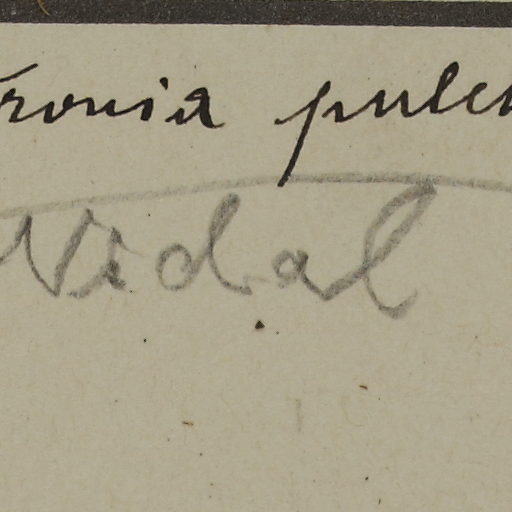 ronia pulch
Vidal